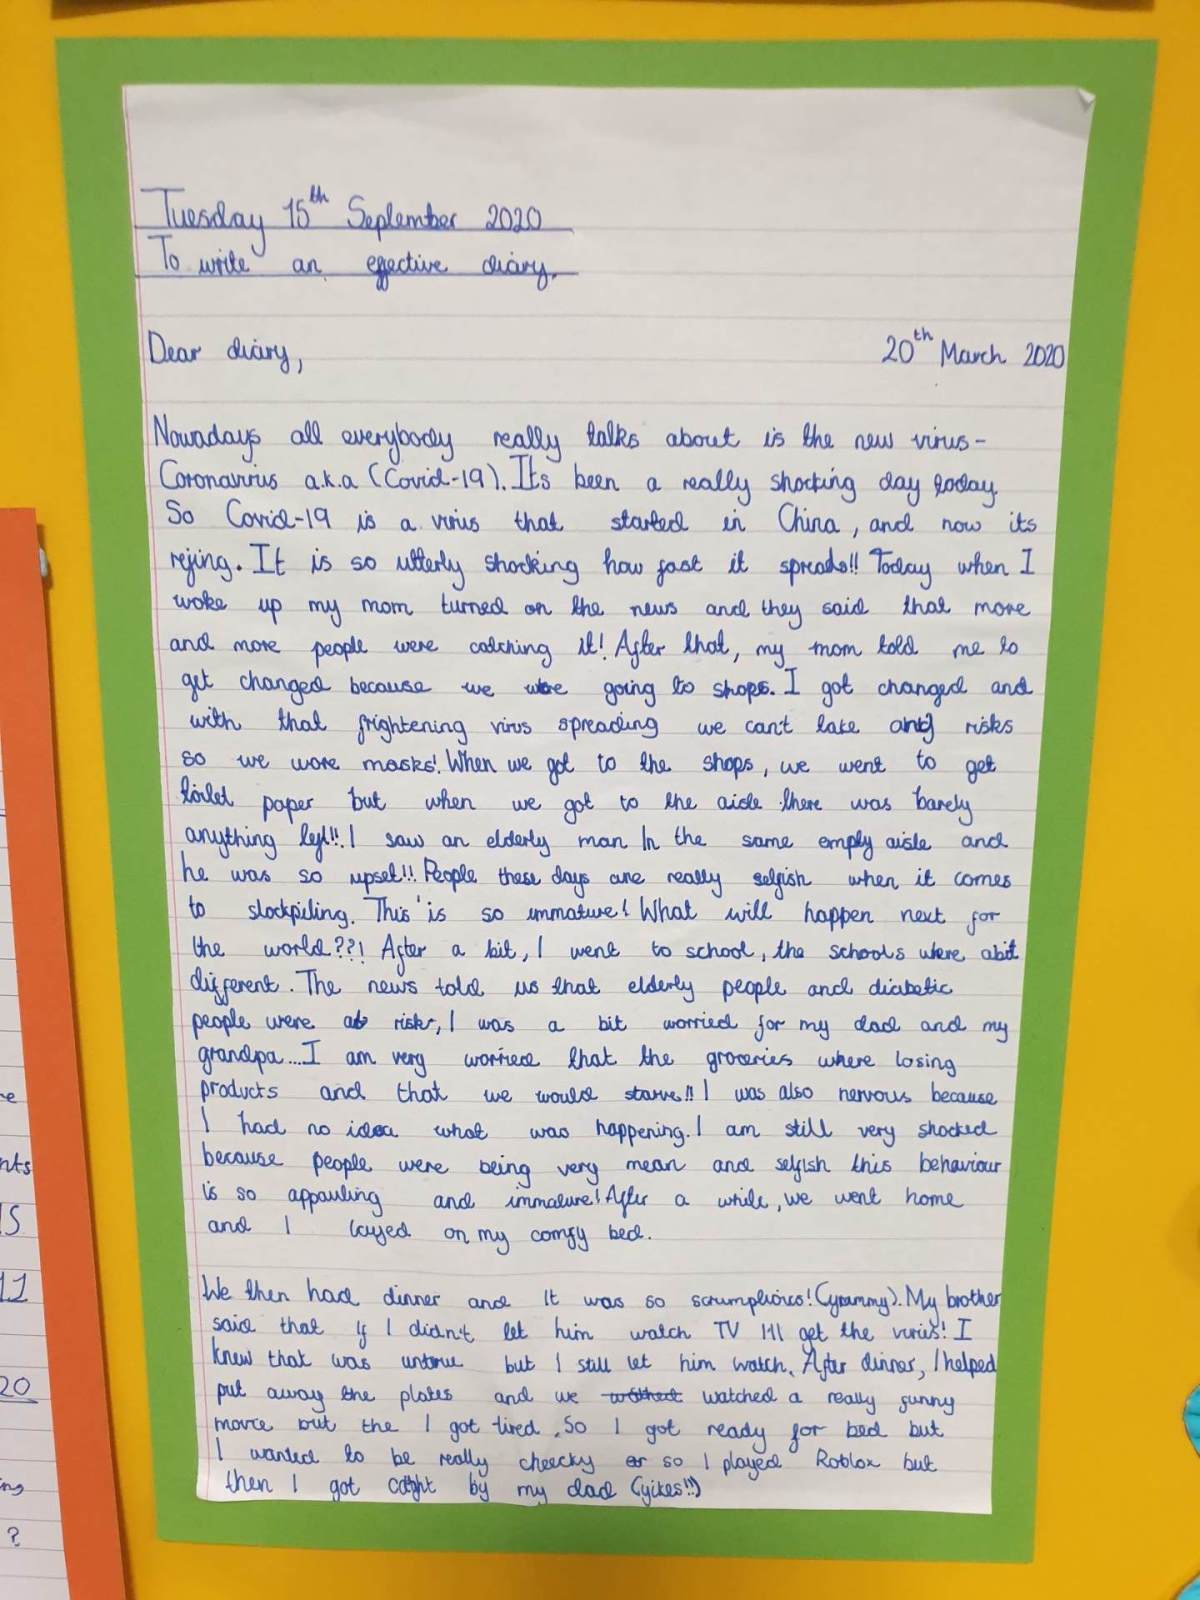 Tuesday 15th September 2020
To write an effective diary.
Dear diary, 20th March 2020
Nowadays all everybody really talks about is the new virus-
Coronavirus a.k.a (Covid-19). Its been a really shocking day today.
So Covid-19 is a virus that started in China, and now its
rejing. It is so utterly shocking how fast it spreads!! Today when I
woke up my mom turned on the news and they said that more
and more people were catching it! After that, my mom told me to
get changed because we were going to shops. I got changed and
with that frightening virus spreading we can't take any risks
so we wore masks! When we got to the shops, we went to get
toilet paper but when we got to the aisle there was barely
anything left!!. I saw an elderly man In the same empty aisle and
he was so upset!! People these days are really selfish when it comes
to stockpiling. This is so immature! What will happen next for
the world??! After a bit, I went to school, the schools were abit
different. The news told us that elderly people and diabetic
people were at risk, I was a bit worried for my dad and my
grandpa...I am very worried that the groceries where losing
products and that we would starve!! I was also nervous because
I had no idea what was happening. I am still very shocked
because people were being very mean and selfish this behaviour
is so appauling and immature! After a while, we went home
and I layed on my comfy bed.
We then had dinner and It was so scrumptious! (yummy). My brother
said that If I didn't let him watch TV I'll get the virus! I
knew that was untrue but I still let him watch. After dinner, I helped
put away the plates and we watched a really funny
movie but the I got tired. So I got ready for bed but
I wanted to be really cheecky so I played Roblox but
then I got caught by my dad (yikes!!)
15
11
20
?